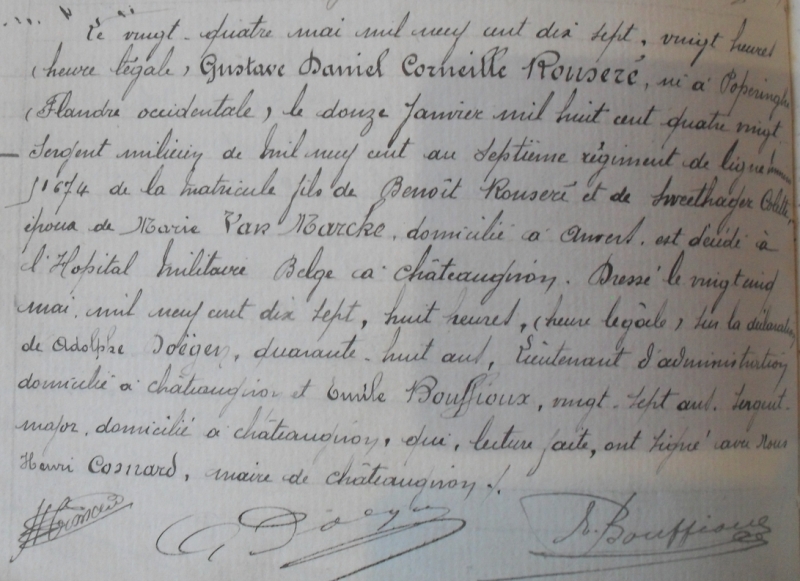 Le vingt-quatre mai mil neuf cent dix sept, vingt heures
(heure légale) Gustave Daniel Corneille Rouseré, né à Poperinghe
(Flandre occidentale), le douze Janvier mil huit cent quatre vingt
Sergent milicien de mil neuf cent au septième régiment de ligne
1674 de la matricule fils de Benoît Rouseré et de Sweethager Colette,
époux de Marie Van Marcke, domicilié à Anvers, est décédé à
l'Hopital Militaire Belge à Châteaugiron. Dressé le vingt cinq
mai, mil neuf cent dix sept, huit heures, (heure légale) sur la déclaration
de Adolphe Doëgen, quarante-huit ans, Lieutenant d'administration
domicilié à châteaugiron et Emile Bouffioux, vingt-sept ans, Sergent-
major, domicilié à châteaugiron, qui, lecture faite, ont signé avec Nous
Henri Cosnard, maire de châteaugiron ./.
E. Bouffioux